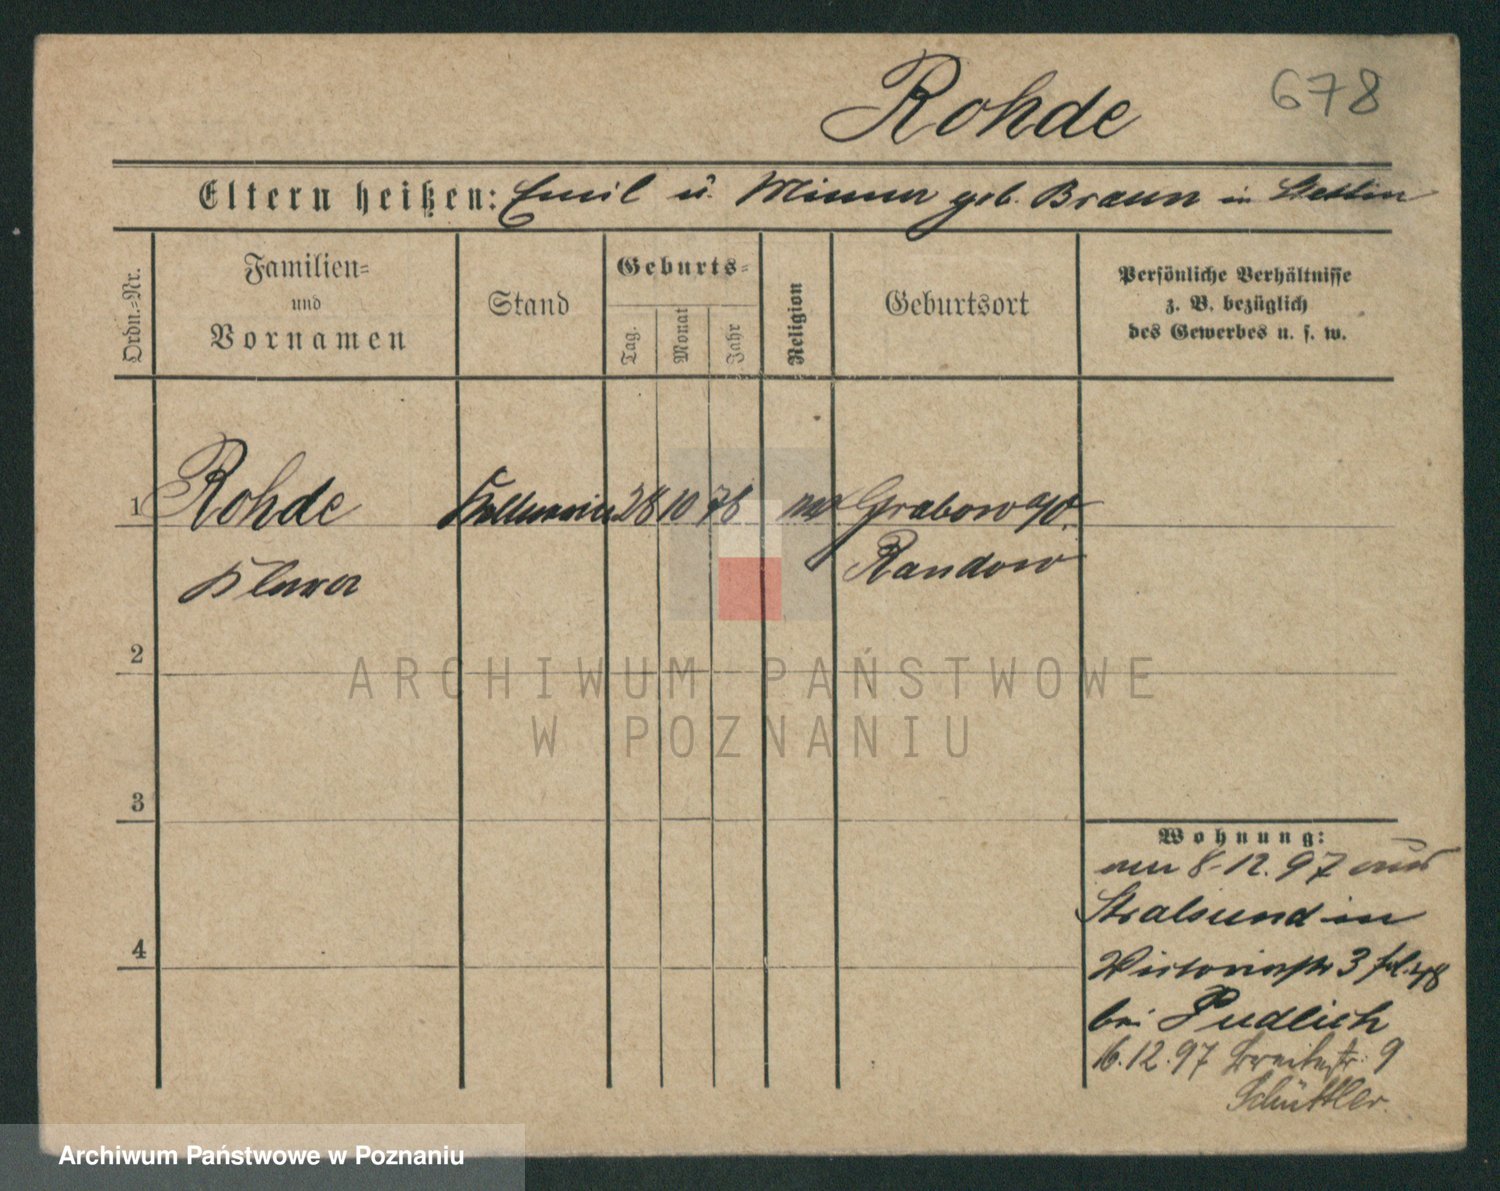 Rohde 678
Eltern heißen: Emil u. Minna geb. Braun in Stettin
Ordn.=Nr.
Familien=
und
Vornamen
Stand
Geburts=
Tag.
Monat
Jahr
Religion
Geburtsort
Persönliche Verhältnisse
z. B. bezüglich
des Gewerbes u. s. w.
1 Rohde Kellnerin 28 10 78 Grabow
Randow
Klara
2
3
4
ARCHIWUM PAŃSTWOWE
W POZNANIU
Wohnung:
am 8.12.97 aus
Stralsund in
Victoriastr 3
bei Pudlich
16.12.97 Breitestr. 9
Schüttler.
Archiwum Państwowe w Poznaniu